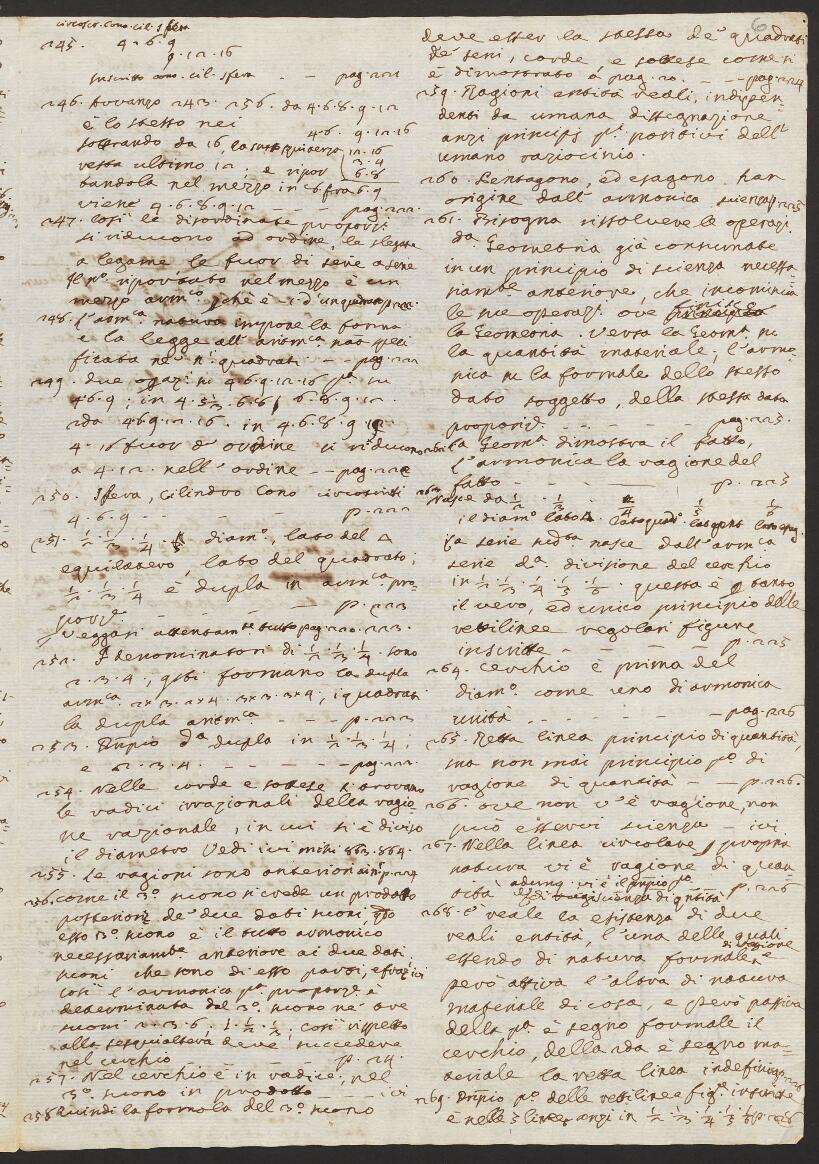 circoscr. cono. cil. sfera
245. 4. 6. 9
9. 12. 16
inscritto cono. cil. sfera - - pag. 221
246. Avvanzo 243. 256. da 4. 6. 8. 9. 12
è lo stesso nei 4. 6. 9. 12. 16
sottrando da 16, la 12. 16
resta ultimo 12; e ripor 3. 4
tandola nel mezzo in 6. 8 fra 6. 9
viene 4. 6. 8. 9. 12 - - pag. 222.
247. Così le disordinate proporzi
si riducono ad ordine, la slegata
a legame le fuor di serie a serie
Il n.º riportato nel mezzo è un
mezzo armco
248. L'armca natura impone la forma
e la legge all' aritmca
ficata ne' n.i quadrati - - pag. 222
249. due 4. 6. 9. 12. 16
4. 6. 9; in 6. 8. 9. 12
2da 4. 6. 9. 12. 16. in 4. 6. 8. 9. 12
4. 16 fuor d' ordine si riducono
a 4. 12. nell' ordine - - pag. 222
250. Sfera, cilindro cono circoscritti
4. 6. 9 - - - p. 222
251. 1/2. 1/3. 1/4. diam.º, lato del Δ
equilatero, lato del quadrato;
1/2. 1/3. 1/4 è dupla in armca pro-
porz.e - - - p. 223
Veggasi attentamte tutto pag. 220. 223.
252. I denominatori di 1/2. 1/3. 1/4. sono
2. 3. 4; qsti formano la dupla
armca. 2x3. 2x4. 3x3. 3x4; i quadrati
la dupla aritmca - - - p. 223
253. Pnpio da dupla in 1/2. 1/3. 1/4;
e 2. 3. 4. - - - - pag. 223
254. Nelle corde e sottese si trovano
le radici irrazionali della ragio-
ne razionale, in cui si è diviso
il diametro Vedi ivi 863. 864.
255. Le ragioni sono anteriori p. 224
256. come il 3.º suono si crede un prodotto
posteriore de' due dati suoni,
esso 3.º suono è il tutto armonico
necessariamte anteriore ai due dati
suoni che sono di esso parti, e frazi
così l'armonica pa proporze è
determinata dal 3.º suono ne' tre
suoni 2. 3. 6. 1. 1/2. 1/3; così rispetto
alla sesquialtera deve succedere
nel cerchio - - - - p. 24.
257. Nel cerchio è in radice, nel
3.º suono in prodotto - - - ivi
258 Quindi la formola del 3.º suono
6
deve esser la stessa de' quadrati
de' seni, corde, e sottese come si
è dimostrato a pag. 20. - - pag. 224
259. Ragioni entità reali, indipen-
denti da umana dissegnazione
anzi principj pi. positivi dell'
umano raziocinio.
260. Pentagono, ed esagono han
origine dall' armonica scienza p. 225
261. Bisogna rissolvere le operazi
da Geometria già consumate
in un principio di scienza necessa
riamte anteriore, che incomincia
le sue operazi ove finisce
la Geometria. Versa la Geoma su
la quantità materiale; l'armo-
nica su la formale dello stesso
dato soggetto, della stessa data
proporzi. - - - - pag. 225.
262. La Geoma dimostra il fatto,
l'armonica la ragione del
fatto - - - - p. 225
263. Nasce da 1/2. 1/3. 1/4 1/5 1/6
il diam.º lato Δ. lato quad.
la serie nasce dall' armca
serie da. divisione del cerchio
in 1/2. 1/3. 1/4. 1/5. 1/6. questa è
il vero, ed unico principio delle
rettilinee regolari figure
inscritte - - - - p. 225
264. Cerchio è prima del
diam.º come uno di armonica
unità - - - - - pag. 226
265. Retta linea principio di quantità,
ma non mai principio po. di
ragione di quantità - - p. 226.
266. ove non v' è ragione, non
può esservi scienza - ivi
267. Nella linea circolare, propria
natura vi è ragione di quan-
tità adunq. vi è il pnpio po
di scienza di qntità p. 226
268. è reale la esistenza di due
reali entità, l'una delle quali
essendo di natura formale di ragione e
però attiva l'altra di natura
materiale di cosa, e però passiva
della pa. è segno formale il
cerchio, della 2da è segno ma-
teriale la retta linea indefinita p. 226
269. Pnpio po. delle rettilinee fige. inscritte
è nelle 5 linee, anzi in 1/2 1/3 1/4 1/5 1/6 p. 226